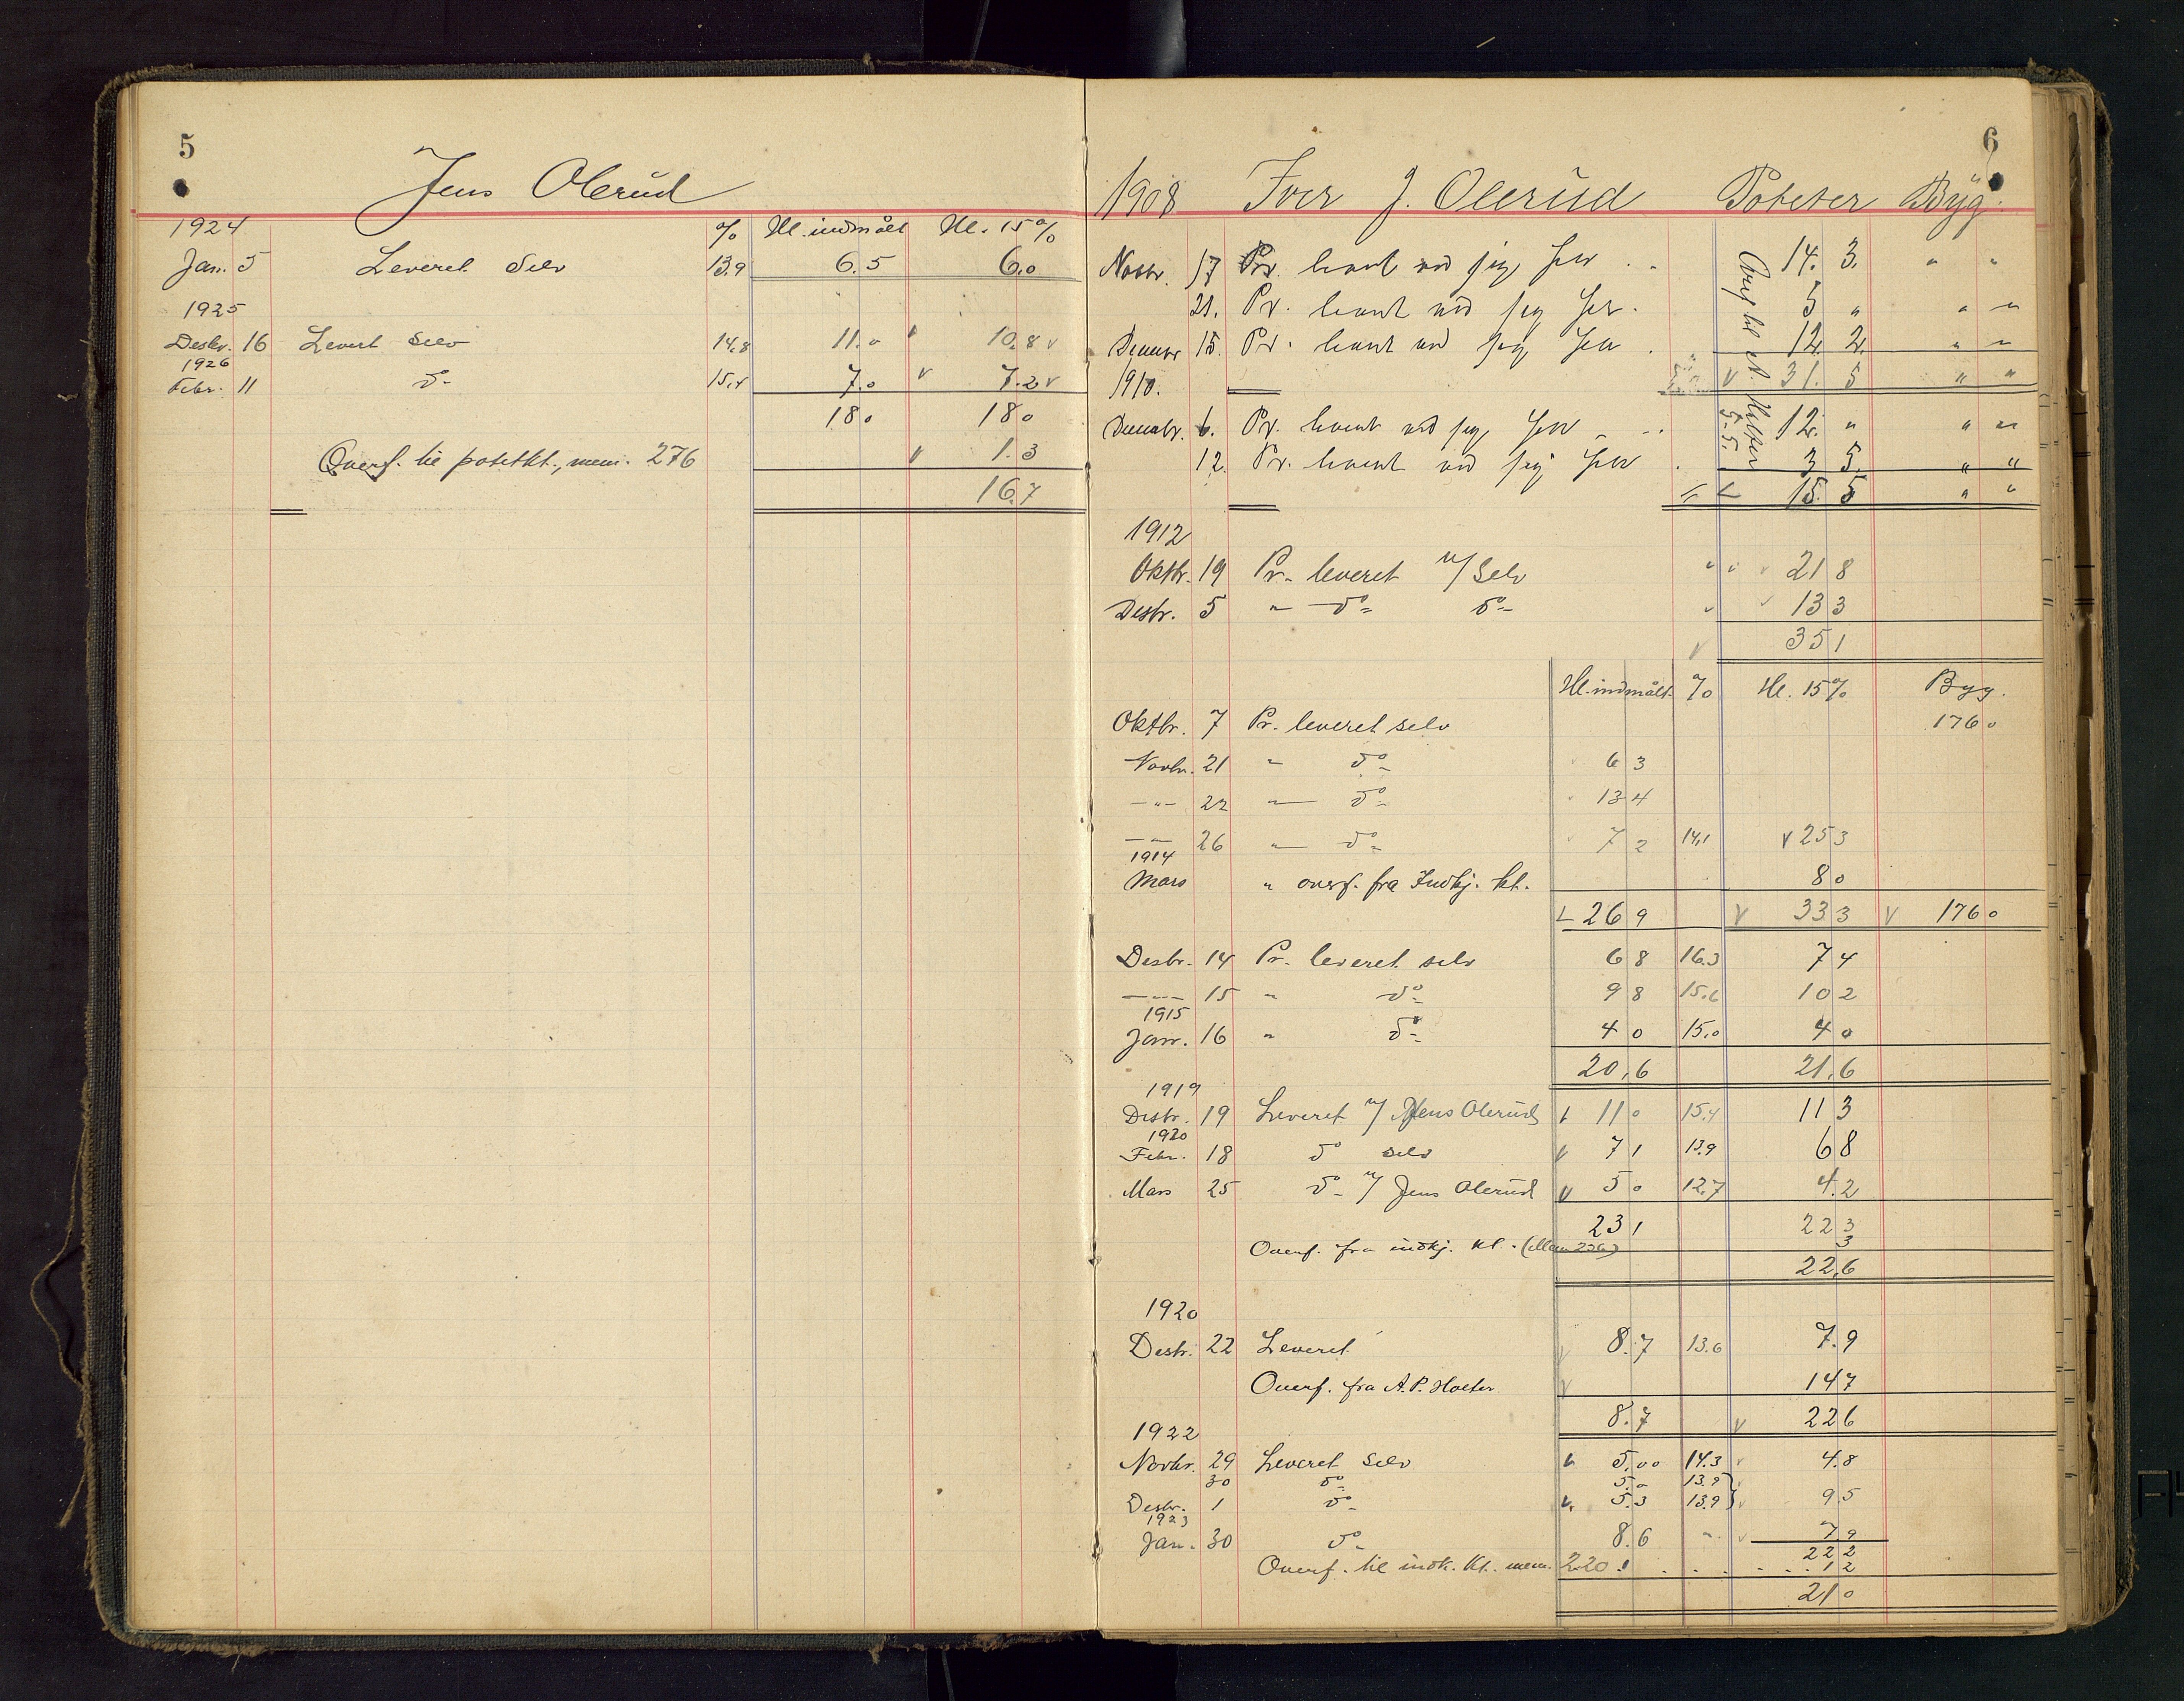 5
Jens Olerud
1924 % Hl. indmålt Hl. 15%
Jan. 5 Leveret Selv 13,9 6.5 6.0
1925
Desbr. 16 Levert Selv 14,8 11.0 v 10,8 v
1926
Febr. 11 do- 15,4 7.0 v 7.2 v
18 0 18 0
Overf. til potetkt., mem. 276 v 1.3
16.7
6
1908 Iver J. Olerud Poteter Byg.
Novbr. 17 Pr. levert ved sig selv 14. 3. " "
21. Pr. levert ved sig selv. 5 " " "
Decembr 15. Pr. levert ved sig selv 12. 2. " "
1910. v 31. 5 " "
Decembr. 6. Pr. levert ved sig selv 12. " " "
12. Pr. levert ved sig selv 3 5. " "
15. 5 " "
1912
Oktbr. 19 Pr. leveret v/ Selv 21 8
Desbr. 5 " do- do- 13 3
v 35 1
Hl. indmålt % Hl. 15% Byg.
Oktbr. 7 Pr. leveret selv 176 0
Novbr. 21 " do- 6 3
-"- 22 " do- 13 4
-"- 26 " do- 7 2 14,1 v 25 3
1914
Mars " overf. fra Indkj. kt. 8 0
26 9 v 33 3 v 176 0
Desbr. 14 Pr. leveret selv 6 8 16.3 7 4
-"- 15 " do- 9 8 15.6 10 2
1915
Janr. 16 " do- 4 0 15,0 4 0
20,6 21,6
1919
Desbr. 19 Leveret v/ Jens Olerud 11 0 15.4 11 3
1920
Febr. 18 do selv v 7 1 13.9 6 8
Mars 25 do- v/ Jens Olerud v 5 0 12,7 4.2
23 1 22 3
Overf. fra indkj. kt. (Mem 236) 3
22,6
1920
Desbr. 22 Leveret v 8.7 13.6 7.9
Overf. fra A. P. Holter v 14 7
8.7 v 22 6
1922
Novbr. 29 Leveret Selv 5,00 14.3 v 4.8
30 do- 5.0 13.9
Desbr. 1 do- v. 5.3 13.9 } v 9.5
1923
Jan. 30 do- 8.6 " v 7.9
22 2
Overf. til indk. kt. mem. 220. 1 2
21 0